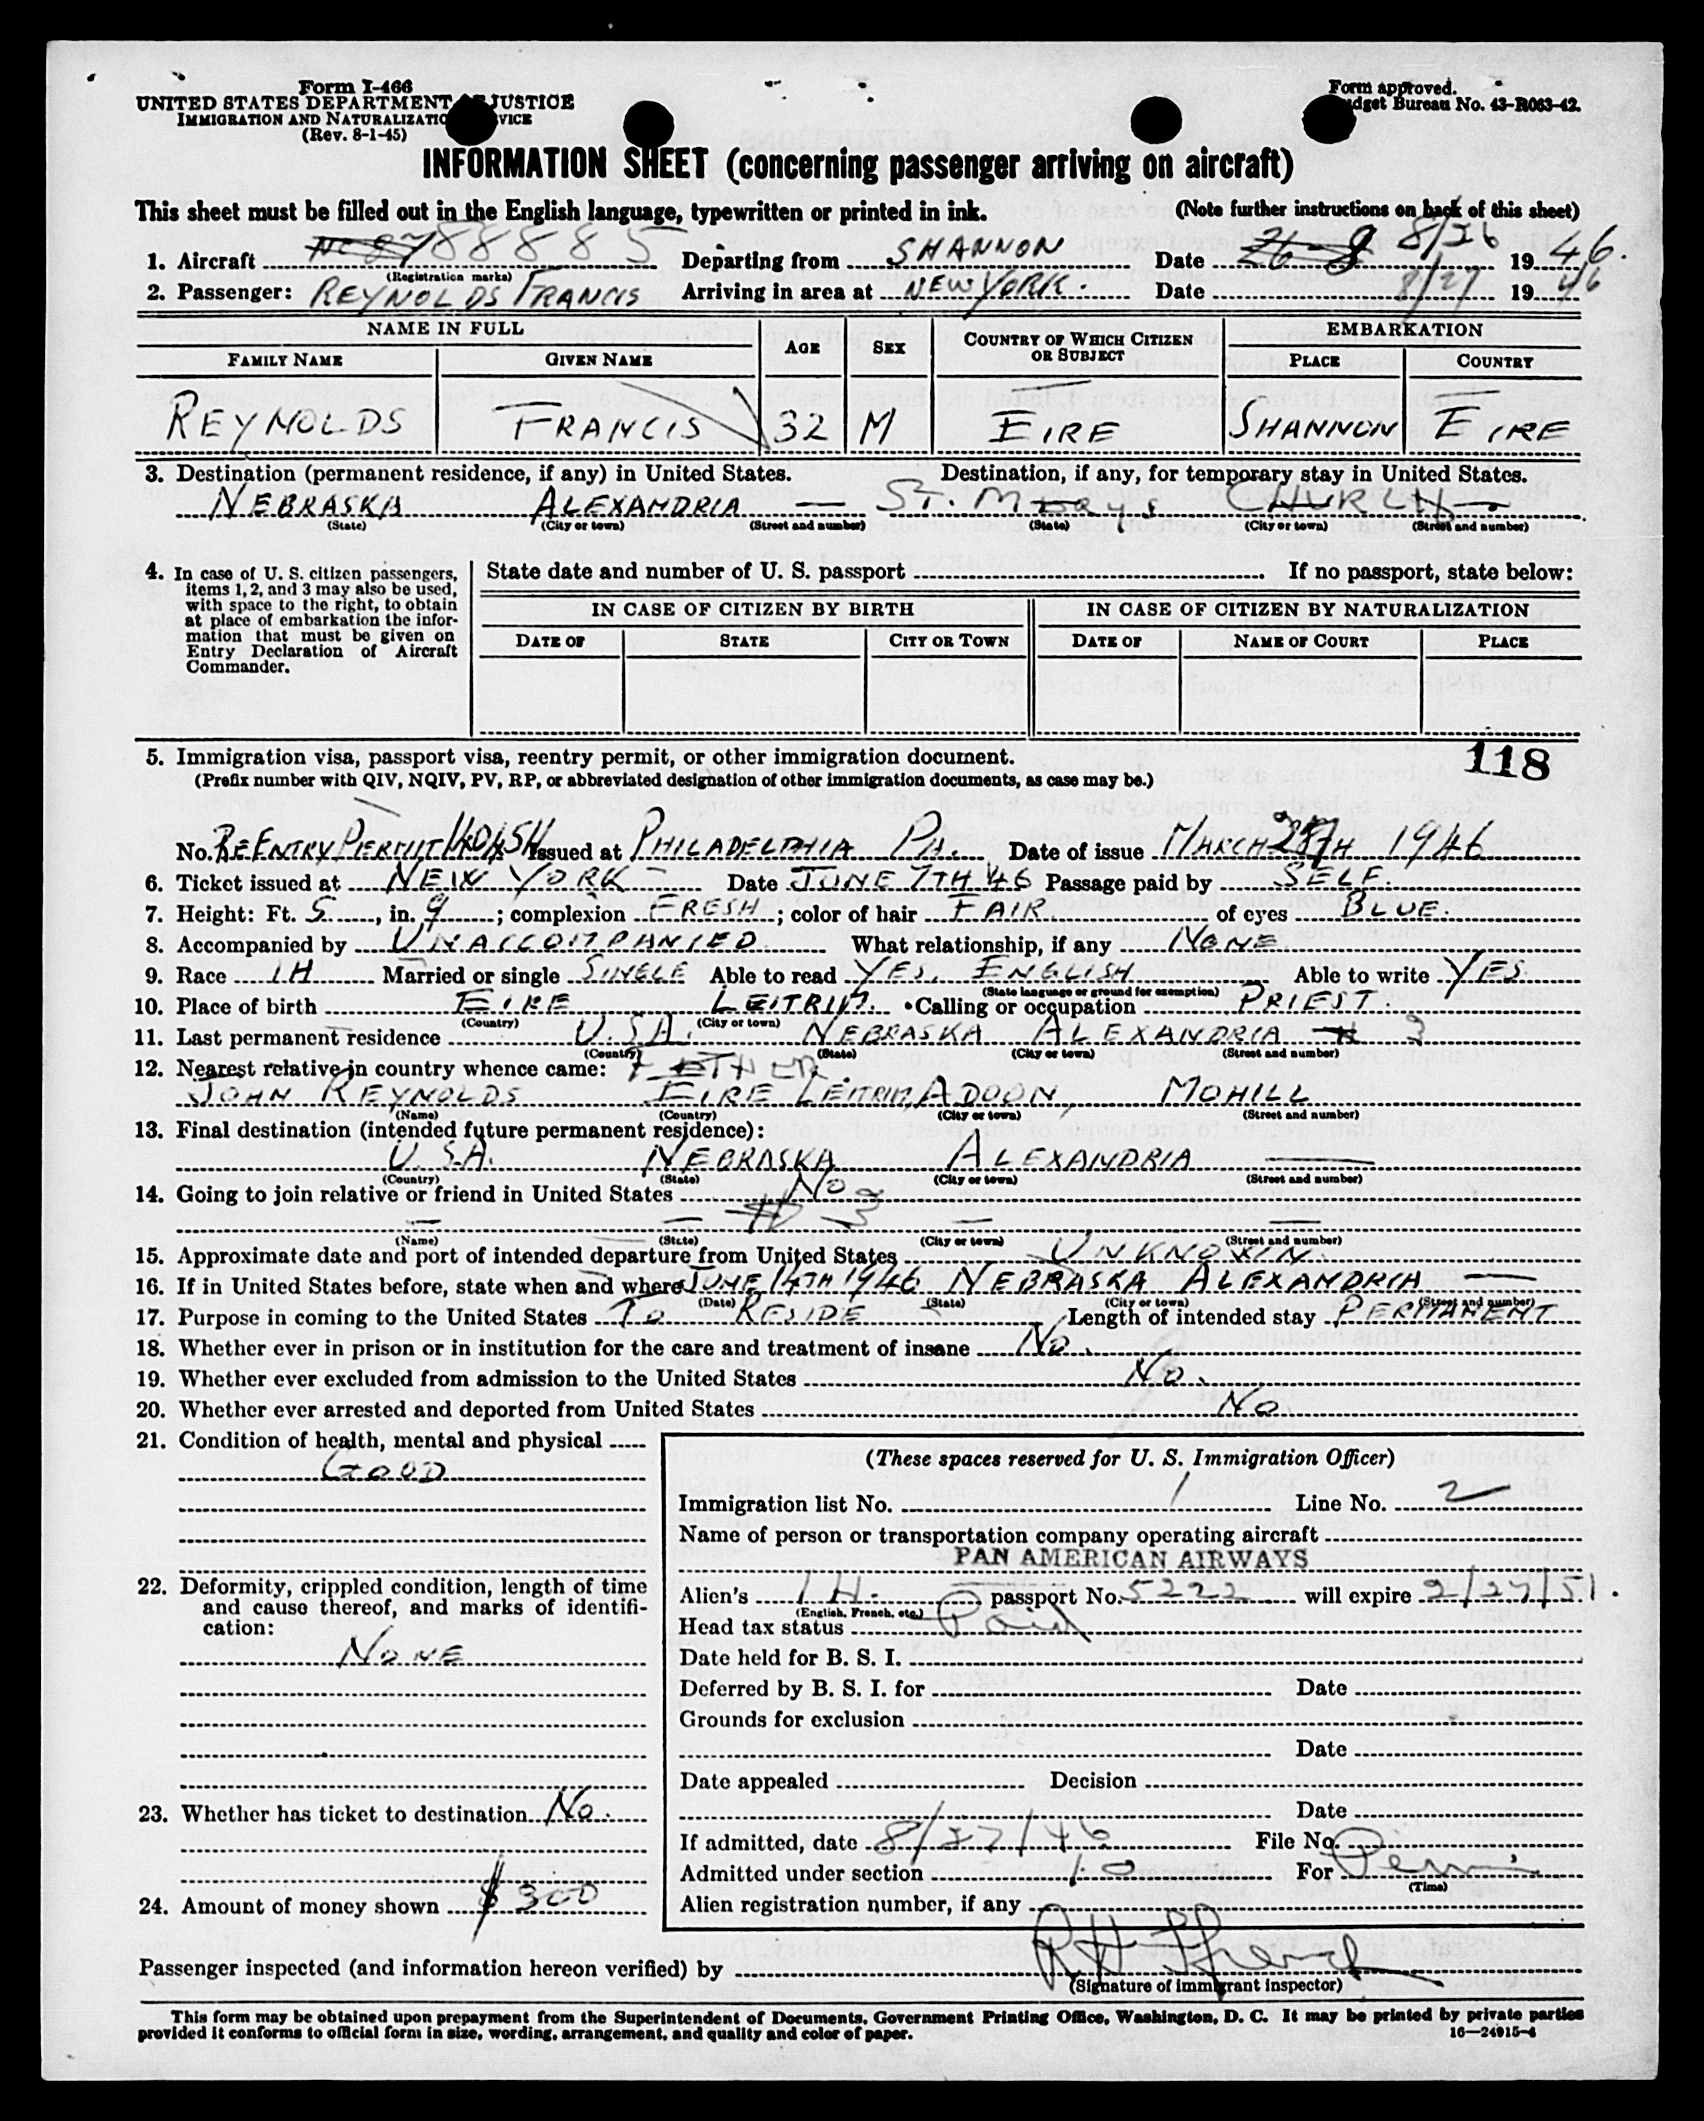 Form I-466
UNITED STATES DEPARTMENT JUSTICE
IMMIGRATION AND NATURALIZATIO VICE
(Rev. 8-1-45)
Form approved.
dget Bureau No. 43-R063-42.
INFORMATION SHEET (concerning passenger arriving on aircraft)
This sheet must be filled out in the English language, typewritten or printed in ink. (Note further instructions on back of this sheet)
1. Aircraft 88885 Departing from SHANNON Date 8/26 1946.
(Registration marks)
2. Passenger: REYNOLDS FRANCIS Arriving in area at NEW YORK. Date 8/27 1946
NAME IN FULL AGE SEX COUNTRY OF WHICH CITIZEN OR SUBJECT EMBARKATION
FAMILY NAME GIVEN NAME PLACE COUNTRY
REYNOLDS FRANCIS 32 M EIRE SHANNON EIRE
3. Destination (permanent residence, if any) in United States. Destination, if any, for temporary stay in United States.
NEBRASKA ALEXANDRIA — ST. Marys CHURCH —
(State) (City or town) (Street and number) (State) (City or town) (Street and number)
4. In case of U. S. citizen passengers, items 1, 2, and 3 may also be used, with space to the right, to obtain at place of embarkation the information that must be given on Entry Declaration of Aircraft Commander.
State date and number of U. S. passport . If no passport, state below:
IN CASE OF CITIZEN BY BIRTH IN CASE OF CITIZEN BY NATURALIZATION
DATE OF STATE CITY OR TOWN DATE OF NAME OF COURT PLACE
5. Immigration visa, passport visa, reentry permit, or other immigration document. 118
(Prefix number with QIV, NQIV, PV, RP, or abbreviated designation of other immigration documents, as case may be.)
No. REENTRY PERMIT Issued at PHILADELPHIA PA. Date of issue MARCH 1946
6. Ticket issued at NEW YORK Date JUNE 7TH 46 Passage paid by SELF.
7. Height: Ft. 5, in. 9; complexion FRESH; color of hair FAIR. of eyes BLUE.
8. Accompanied by UNACCOMPANIED What relationship, if any NONE
9. Race IH Married or single SINGLE Able to read YES. ENGLISH Able to write YES
(State language or ground for exemption)
10. Place of birth EIRE LEITRIM. Calling or occupation PRIEST.
(Country) (City or town)
11. Last permanent residence U.S.A. NEBRASKA ALEXANDRIA # 3
(Country) (State) (City or town) (Street and number)
12. Nearest relative in country whence came: FATHER
JOHN REYNOLDS EIRE LEITRIM, ADOON, MOHILL
(Name) (Country) (City or town) (Street and number)
13. Final destination (intended future permanent residence):
U.S.A. NEBRASKA ALEXANDRIA —
(Country) (State) (City or town) (Street and number)
14. Going to join relative or friend in United States No
— — # 3 — —
(Name) (State) (City or town) (Street and number)
15. Approximate date and port of intended departure from United States UNKNOWN.
16. If in United States before, state when and where JUNE 14TH 1946 NEBRASKA ALEXANDRIA —
(Date) (State) (City or town) (Street and number)
17. Purpose in coming to the United States To RESIDE Length of intended stay PERMANENT
18. Whether ever in prison or in institution for the care and treatment of insane No.
19. Whether ever excluded from admission to the United States No.
20. Whether ever arrested and deported from United States No
21. Condition of health, mental and physical
GOOD
22. Deformity, crippled condition, length of time and cause thereof, and marks of identification:
NONE
23. Whether has ticket to destination No.
24. Amount of money shown $300
(These spaces reserved for U. S. Immigration Officer)
Immigration list No. 1 Line No. 2
Name of person or transportation company operating aircraft
PAN AMERICAN AIRWAYS
Alien's IH. passport No. 5222 will expire 2/27/51.
(English, French, etc.)
Head tax status Paid
Date held for B. S. I.
Deferred by B. S. I. for Date
Grounds for exclusion
Date
Date appealed Decision
Date
If admitted, date 8/27/46 File No.
Admitted under section For Perm.
(Time)
Alien registration number, if any
Passenger inspected (and information hereon verified) by
(Signature of immigrant inspector)
This form may be obtained upon prepayment from the Superintendent of Documents, Government Printing Office, Washington, D. C. It may be printed by private parties
provided it conforms to official form in size, wording, arrangement, and quality and color of paper. 16—24915-4